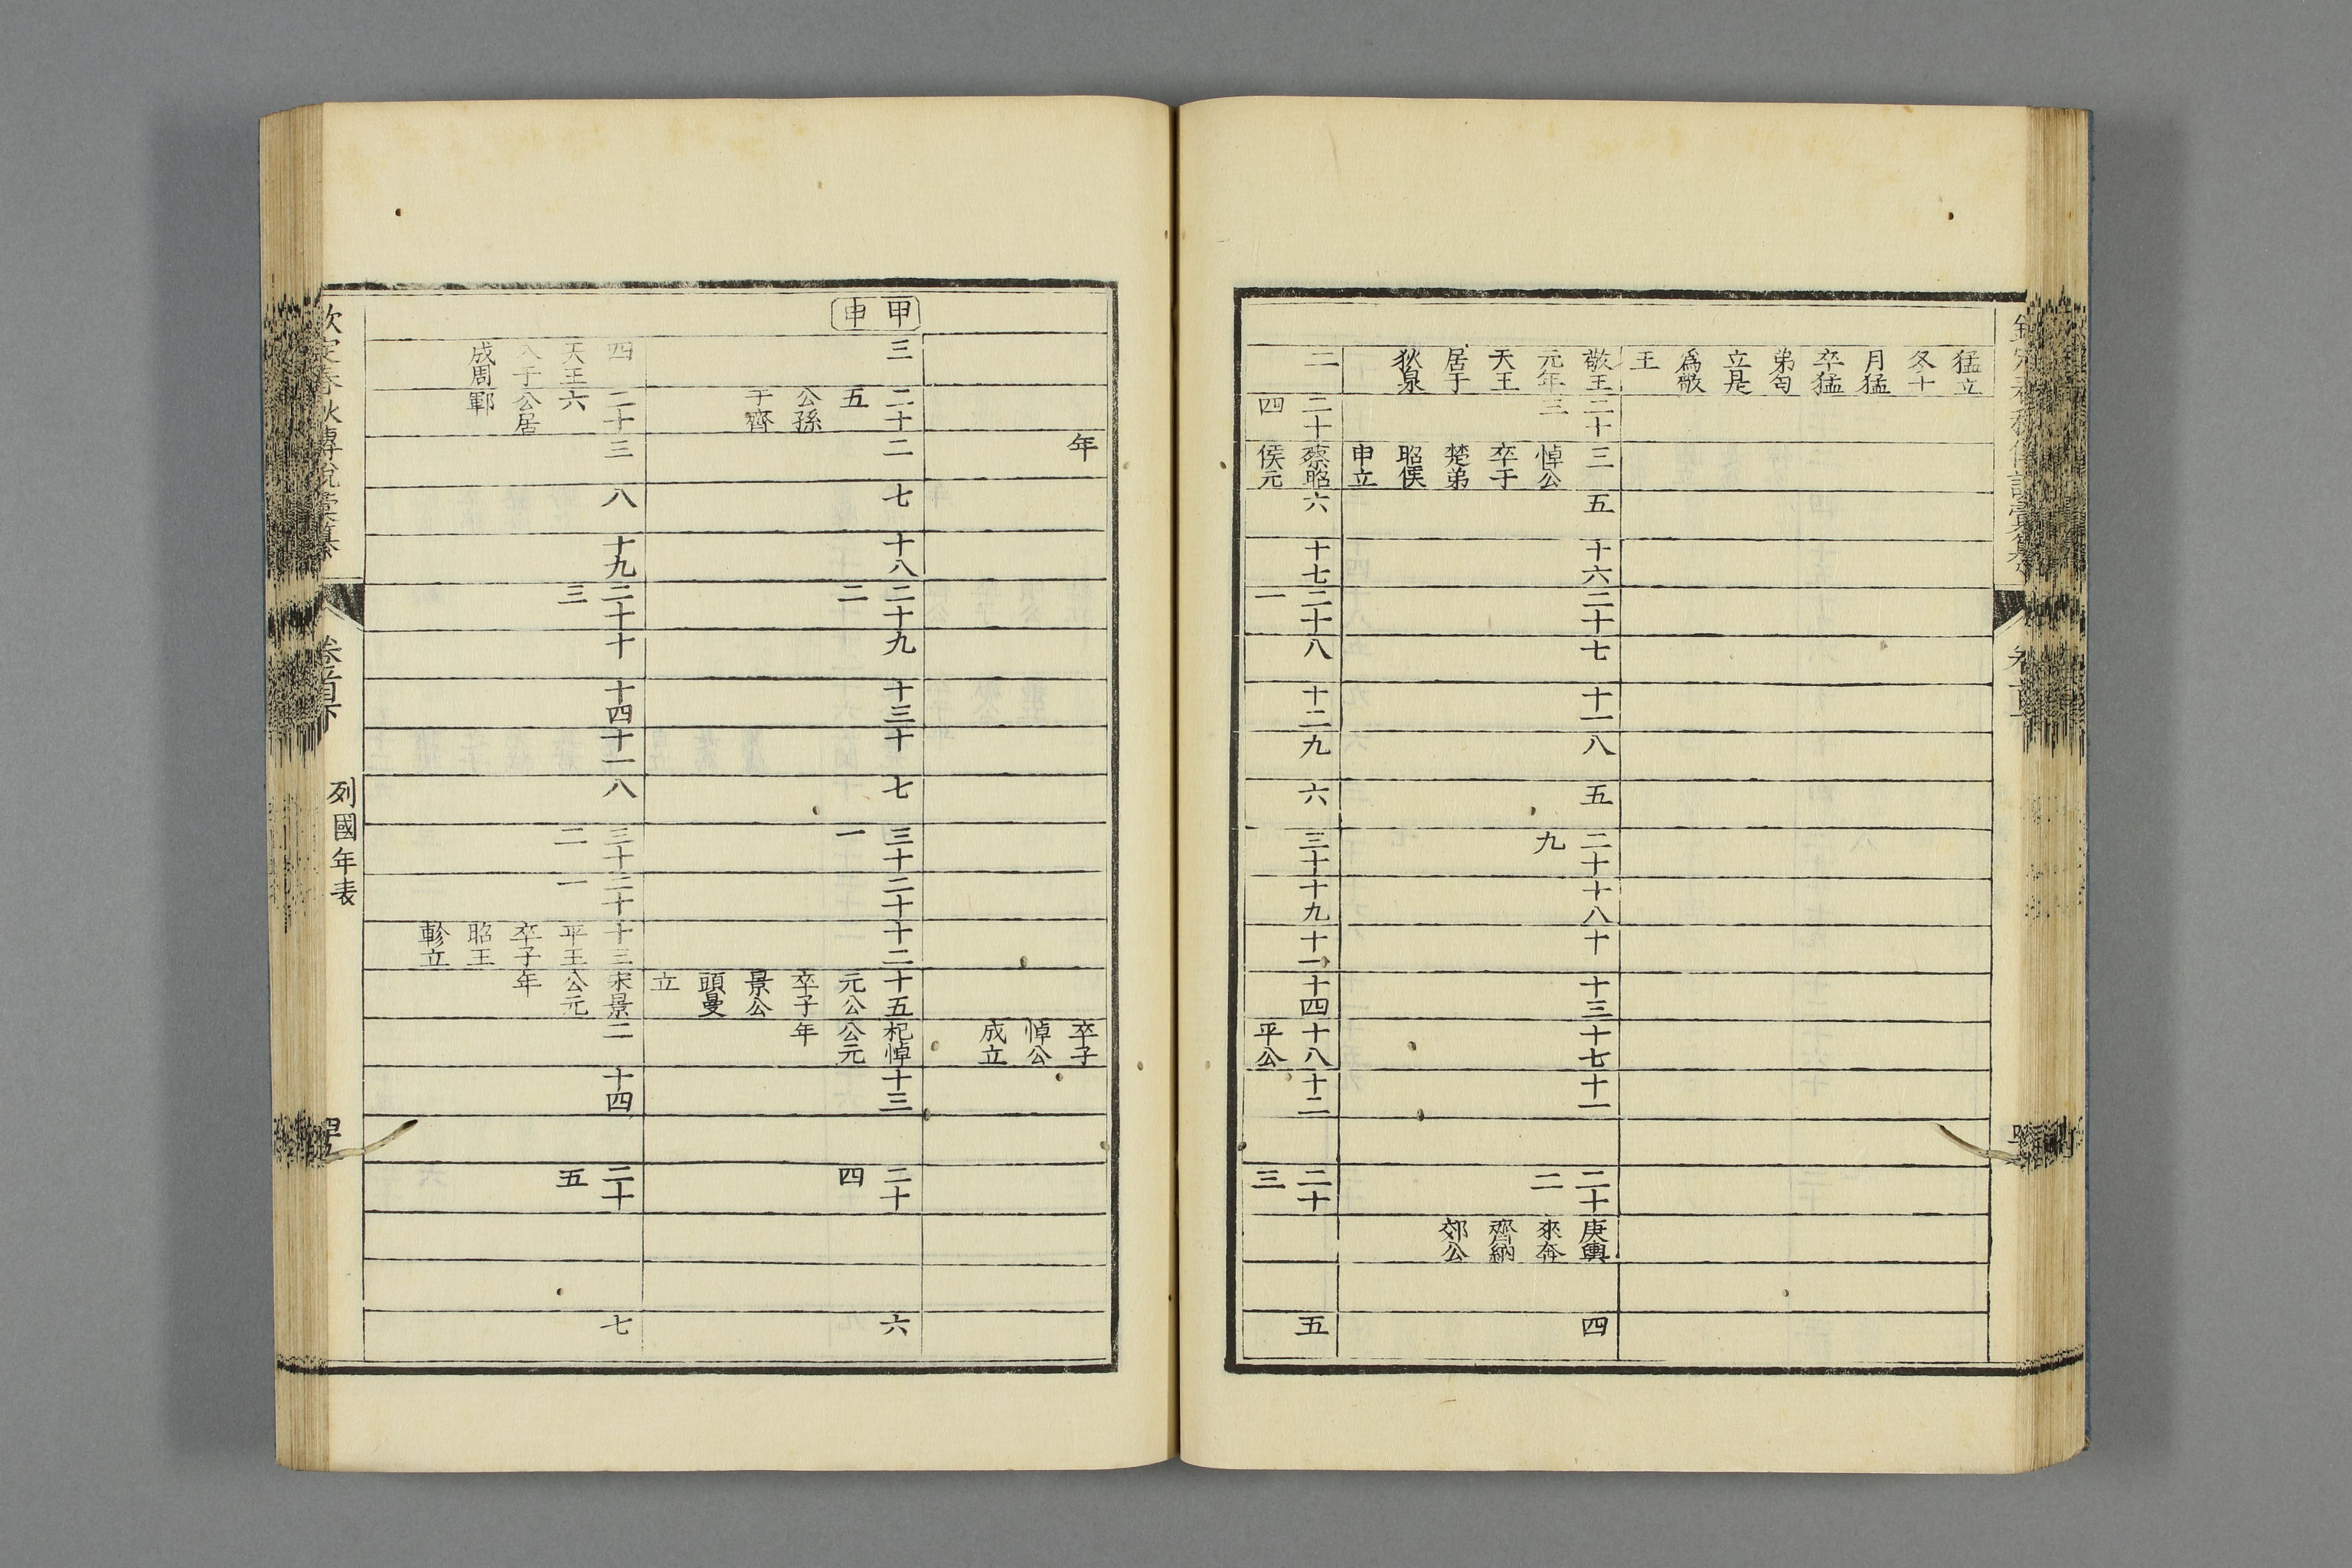 猛立冬十月猛卒猛弟匄立是爲敬王
敬王元年天王居于狄泉
二十三
三悼公卒于楚弟昭侯申立
五
十六
二十
七
十一
八
五
二十九
十八
十
十三
十七
十一
二十二
庚輿來奔齊納郊公
四
二
二十四
蔡昭侯元
六
十七
二十一
八
十二
九
六
三十
十九
十一
十四
十八平公
十二
二十三
五
年
卒子悼公成立
甲申
三
二十五公孫于齊
二
七
十八
二十二
九
十三
十
七
三十一
二十
十二
十五元公卒子景公頭曼立
杞悼公元年
十三
二十四
六
四天王入于成周
二十六公居鄆
三
八
十九
二十三
十
十四
十一
八
三十二
二十一
十三平王卒子昭王軫立
宋景公元年
二
十四
二十五
七
欽定春秋傳說彙纂
卷首下
列國年表